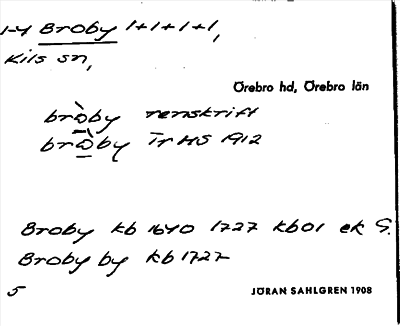 1-4 Broby 1+1+1+1,
Kils sn,
Örebro hd, Örebro län
bròby renskrift
brò̲by Tr HS 1912
Broby kb 1640 1727 kb01 ek G.
Broby by kb 1727
5
JÖRAN SAHLGREN 1908